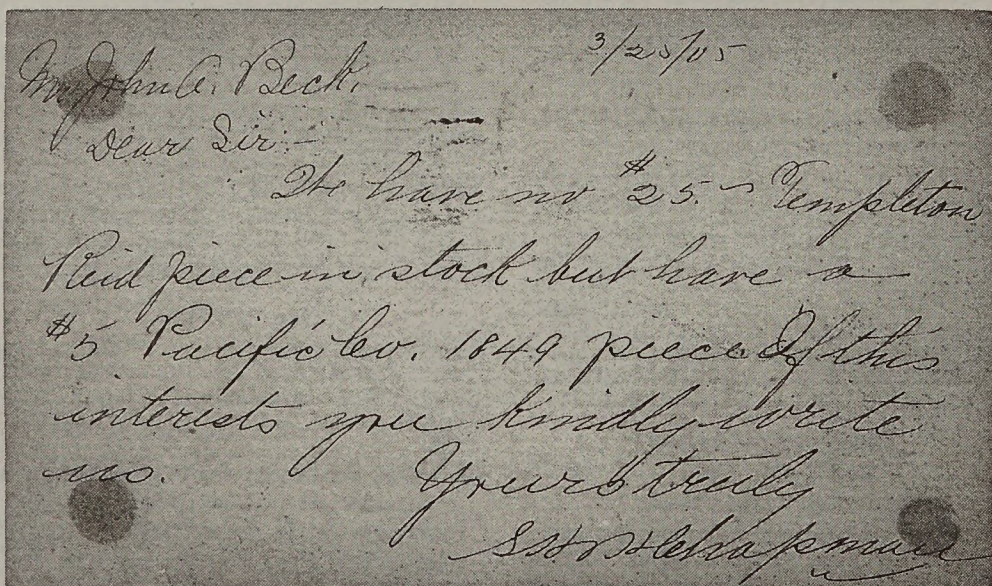 3/25/05
Mr. John A. Beck.
Dear Sir:—
We have no $25.— Templeton
Reid piece in stock but have a
$5 Pacific Co. 1849 piece. If this
interests you kindly write
us. Yours truly
S H & H Chapman